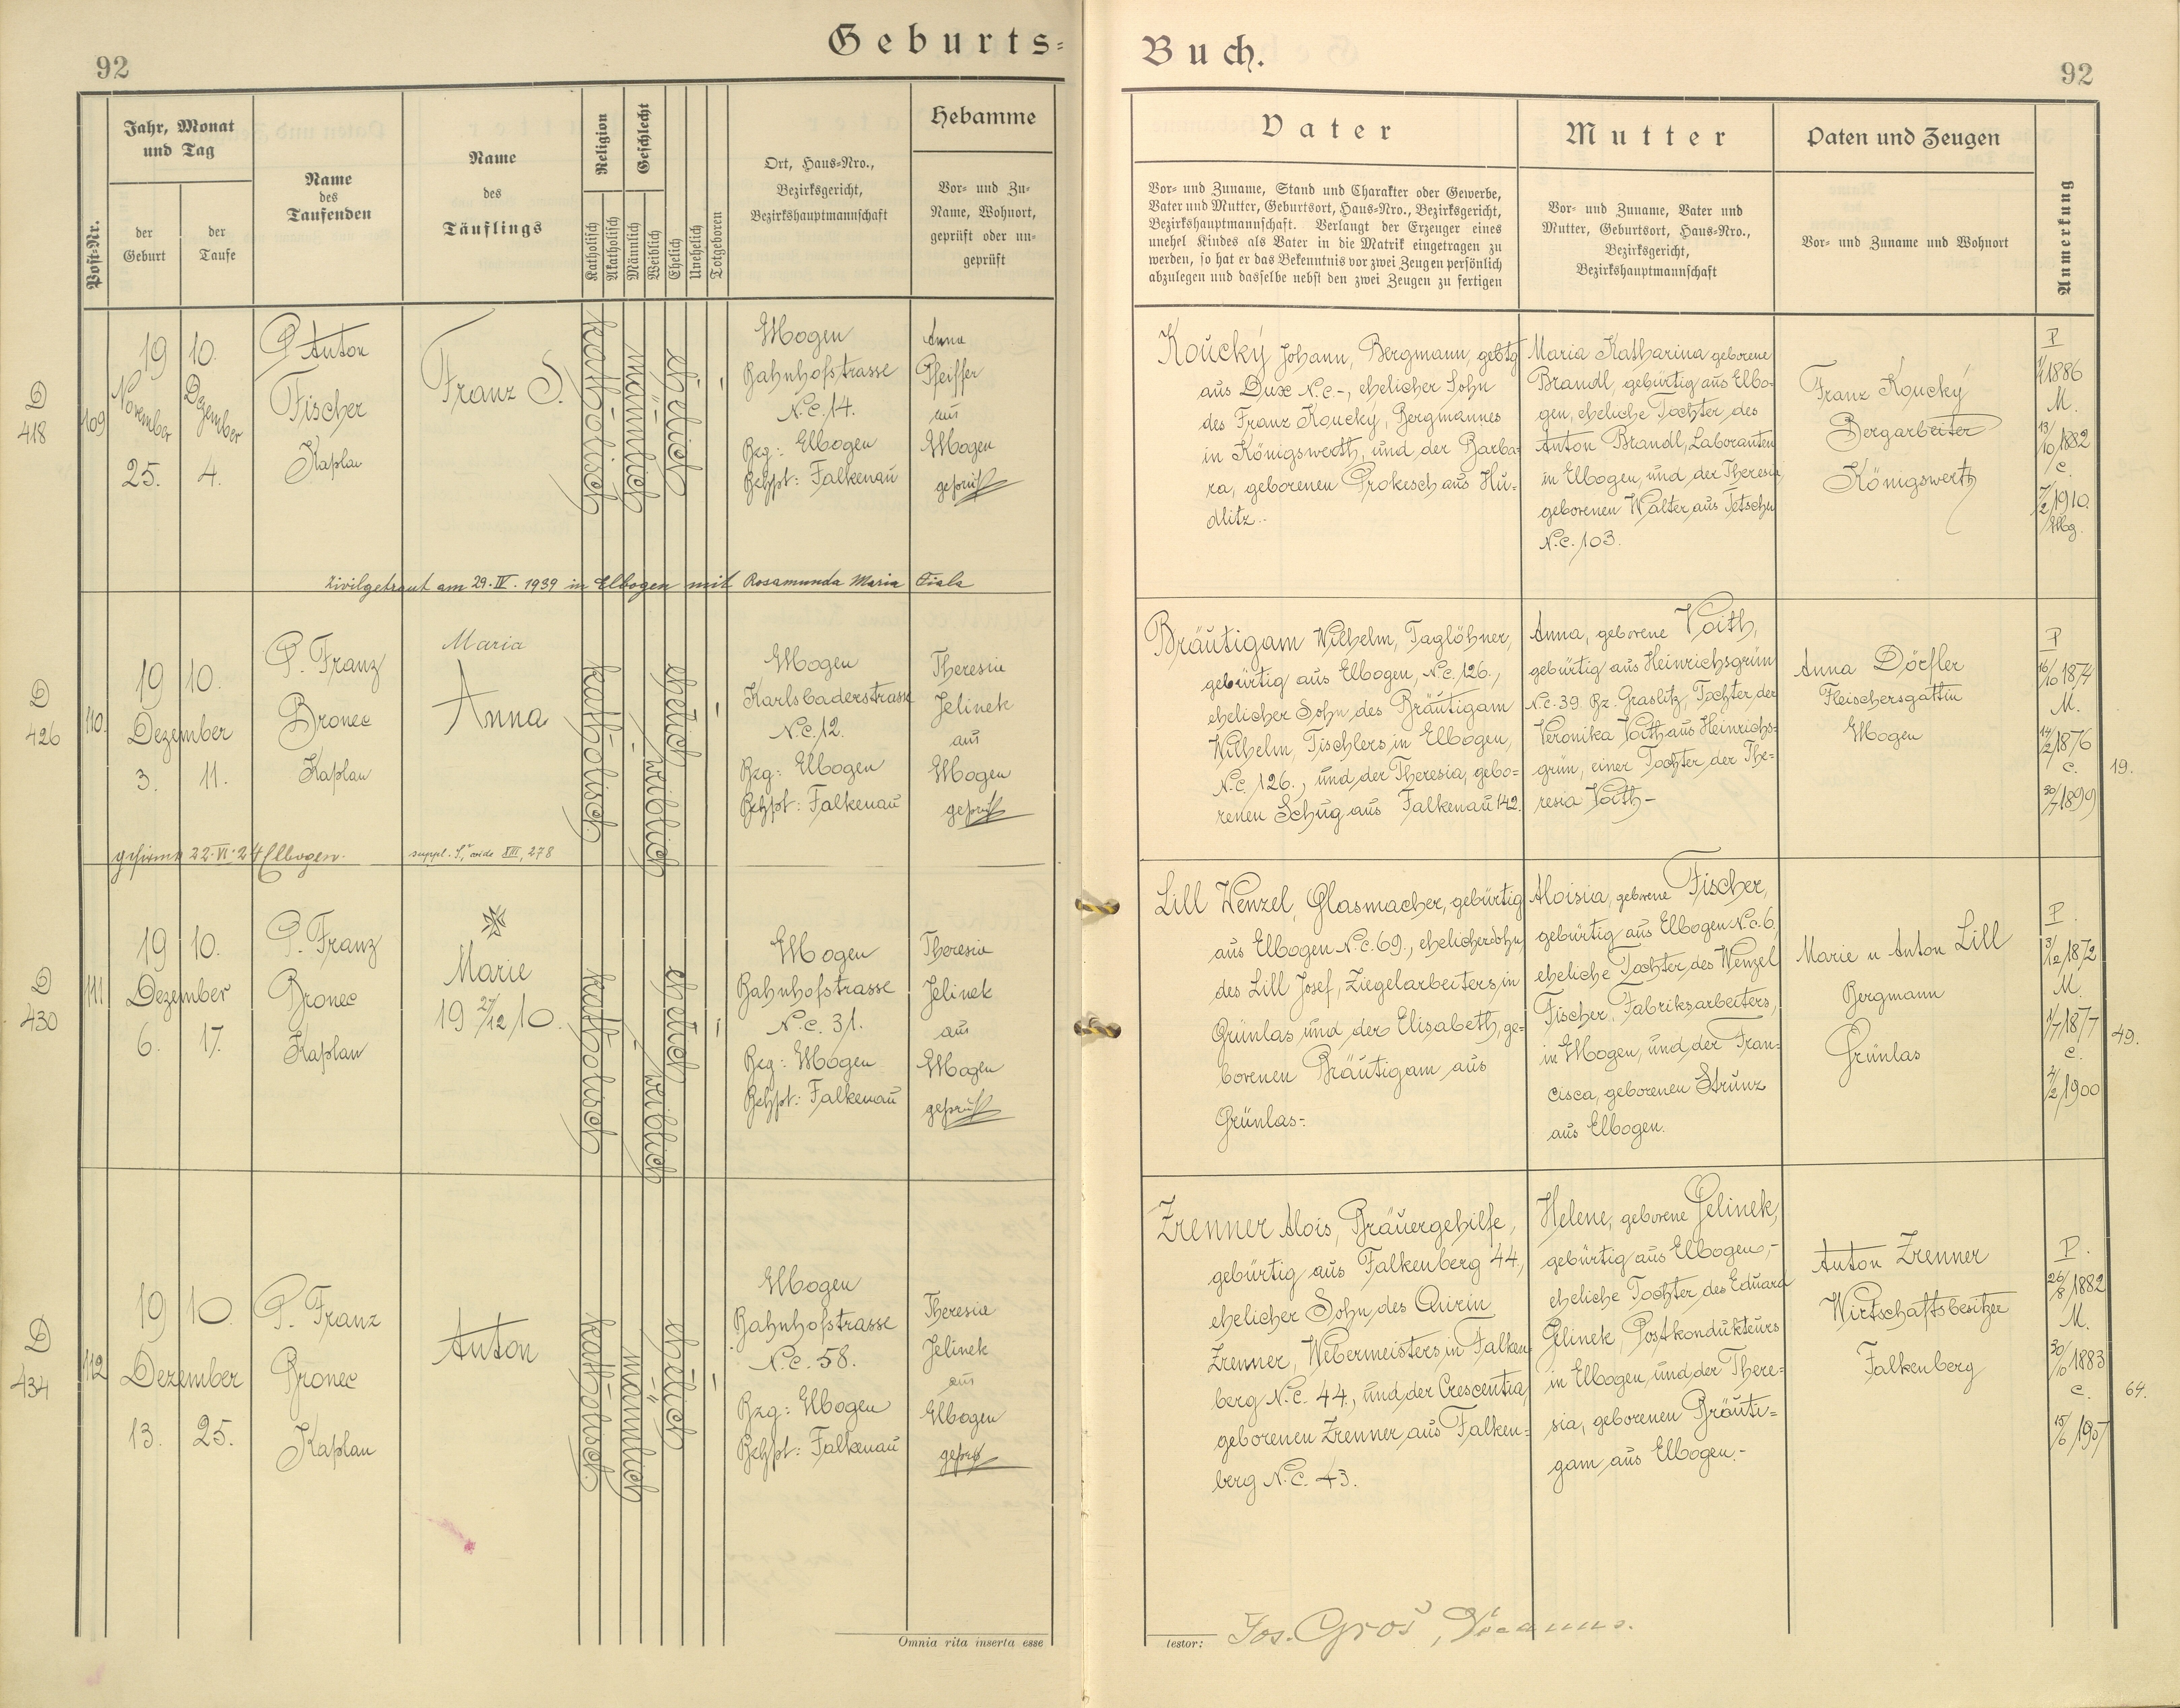 92
Geburts=
Buch.
92
Post-Nr.
Jahr, Monat
und Tag
der
Geburt
der
Taufe
Name
des
Taufenden
Name
des
Täuflings
Religion
Katholisch
Akatholisch
Geschlecht
Männlich
Weiblich
Ehelich
Unehelich
Totgeboren
Ort, Haus=Nro.,
Bezirksgericht,
Bezirkshauptmannschaft
Hebamme
Vor= und Zu=
Name, Wohnort,
geprüft oder un=
geprüft
Vater
Vor= und Zuname, Stand und Charakter oder Gewerbe,
Vater und Mutter, Geburtsort, Haus=Nro., Bezirksgericht,
Bezirkshauptmannschaft. Verlangt der Erzeuger eines
unehel Kindes als Vater in die Matrik eingetragen zu
werden, so hat er das Bekenntnis vor zwei Zeugen persönlich
abzulegen und dasselbe nebst den zwei Zeugen zu fertigen
Mutter
Vor= und Zuname, Vater und
Mutter, Geburtsort, Haus=Nro.,
Bezirksgericht,
Bezirkshauptmannschaft
Paten und Zeugen
Vor= und Zuname und Wohnort
Anmerkung
D
418
109
19 10.
November
25.
Dezember
4.
P Anton
Fischer
Kaplan
Franz S.
katholisch
männlich
ehelich
Elbogen
Bahnhofstrasse
N.c. 14.
Bzg: Elbogen
Bhpt: Falkenau
Anna
Pfeiffer
aus
Elbogen
geprüft
Koucký Johann, Bergmann, gebtg
aus Dux N.c.-, ehelicher Sohn
des Franz Koucký, Bergmannes
in Königswerth, und der Barba=
ra, geborenen Prokesch aus Hu=
dlitz..
Maria Katharina geborene
Brandl, gebürtig aus Elbo=
gen, eheliche Tochter des
Anton Brandl, Laboranten
in Elbogen, und der Theresia
geborenen Walter aus Tetschen
N.c. 103.
Franz Koucký
Bergarbeiter
Königswerth
P
1886
M.
13/10 1882
c.
7/2 1910.
Elbg.
Zivilgetraut am 29.IV. 1939 in Elbogen mit Rosamunda Maria Fiala
D
426
110.
19 10.
Dezember
3. 11.
P. Franz
Bronec
Kaplan
Maria
Anna
katholisch
weiblich
ehelich
Elbogen
Karlsbaderstrasse
N.c. 12.
Bzg: Elbogen
Bhpt: Falkenau
Theresia
Jelinek
aus
Elbogen
geprüft
Bräutigam Wilhelm, Taglöhner,
gebürtig aus Elbogen, N.c. 126.,
ehelicher Sohn des Bräutigam
Wilhelm, Tischlers in Elbogen,
N.c. 126., und der Theresia, gebo=
renen Schug aus Falkenau 142.
Anna, geborene Voith,
gebürtig aus Heinrichsgrün
N.c. 39 Bz. Graslitz, Tochter der
Veronika Voith aus Heinrichs=
grün, einer Tochter der The=
resia Voith-
Anna Dörfler
Fleischersgattin
Elbogen
P
16/10 1874
M.
14/2 1876
c.
30/7 1899
19.
gefirmt 22.VI.24 Elbogen.
suppl. S, vide XIII, 278
D
430
111
19 10.
Dezember
6. 17.
P. Franz
Bronec
Kaplan
Marie
19 27/12 10.
katholisch
weiblich
ehelich
Elbogen
Bahnhofstrasse
N.c. 31.
Bzg: Elbogen
Bhpt: Falkenau
Theresia
Jelinek
aus
Elbogen
geprüft
Lill Wenzel, Glasmacher, gebürtig
aus Elbogen N.c. 69., ehelicher Sohn
des Lill Josef, Ziegelarbeiters, in
Grünlas und der Elisabeth, ge=
borenen Bräutigam aus
Grünlas-.
Aloisia, geborene Fischer,
gebürtig aus Elbogen N.c. 6,
eheliche Tochter des Wenzel
Fischer, Fabriksarbeiters,
in Elbogen, und der Fran=
cisca, geborenen Strunz
aus Elbogen.
Marie u Anton Lill
Bergmann
Grünlas
P.
3/12 1872
M.
1/7 1877
c.
4/2 1900
49.
D
434
112
19 10.
Dezember
13. 25.
P. Franz
Bronec
Kaplan
Anton
katholisch.
männlich
ehelich
Elbogen
Bahnhofstrasse
N.c. 58.
Bzg: Elbogen
Bhpt: Falkenau
Theresia
Jelinek
aus
Elbogen
geprüft
Zrenner Alois, Bräuergehilfe,
gebürtig aus Falkenberg 44,
ehelicher Sohn des Quirin
Zrenner, Webermeisters in Falken
berg N.c. 44., und der Crescentia,
geborenen Zrenner aus Falken=
berg N.c. 43.
Helene, geborene Jelinek,
gebürtig aus Elbogen,-
eheliche Tochter des Eduard
Jelinek, Postkondukteurs
in Elbogen, und der There=
sia, geborenen Bräuti=
gam aus Elbogen.-
Anton Zrenner
Wirtschaftsbesitzer
Falkenberg
P.
26/8 1882
M.
30/10 1883
c.
15/6 1907
64.
Omnia rita inserta esse
testor: Jos. Groš, Decanus.